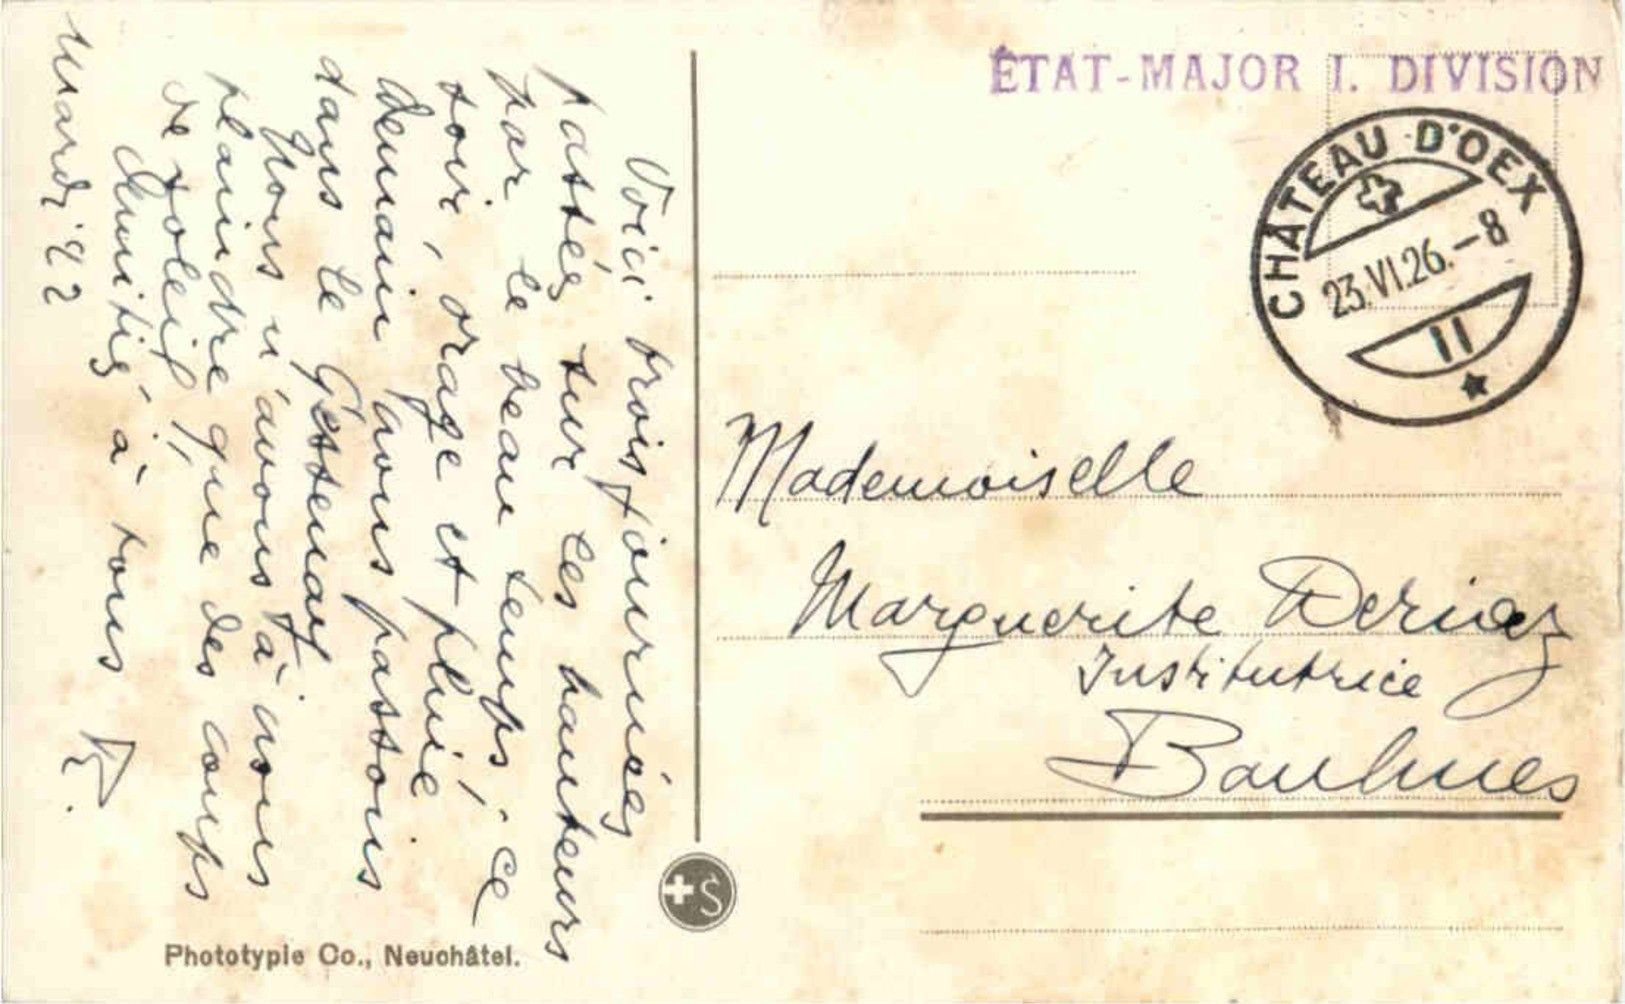 Voici trois journées
passées sur les hauteurs
par le beau temps; ce
soir, orage et pluie,
demain nous passons
dans le Gessenay
Nous n'avons à nous
plaindre que des coups
de soleil!
Amitiés à tous
Mardi 22
ÉTAT-MAJOR I. DIVISION
CHÂTEAU D'OEX
23.VI.26.-8
II
Mademoiselle
Marguerite Deriaz
Institutrice
Baulmes
S
Phototypie Co., Neuchâtel.